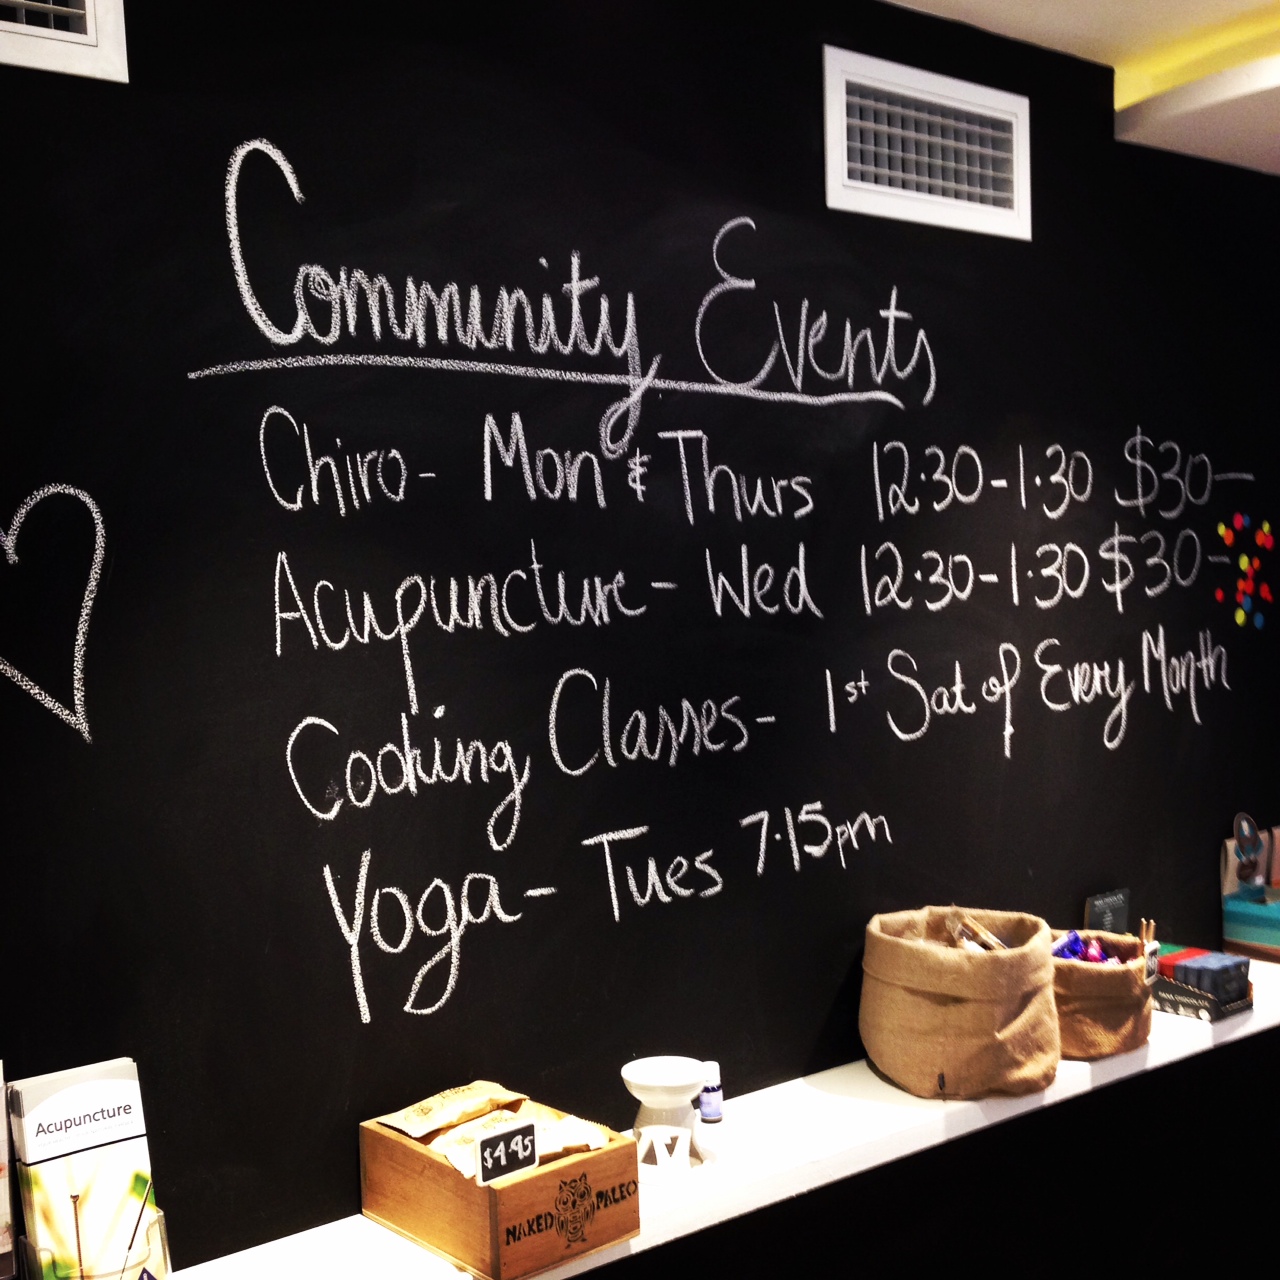 Community Events
Chiro- Mon & Thurs 12.30-1.30 $30-
Acupuncture- Wed 12.30-1.30 $30-
Cooking Classes- 1st Sat of Every Month
Yoga- Tues 7.15pm
Acupuncture
$4.95
NAKED PALEO